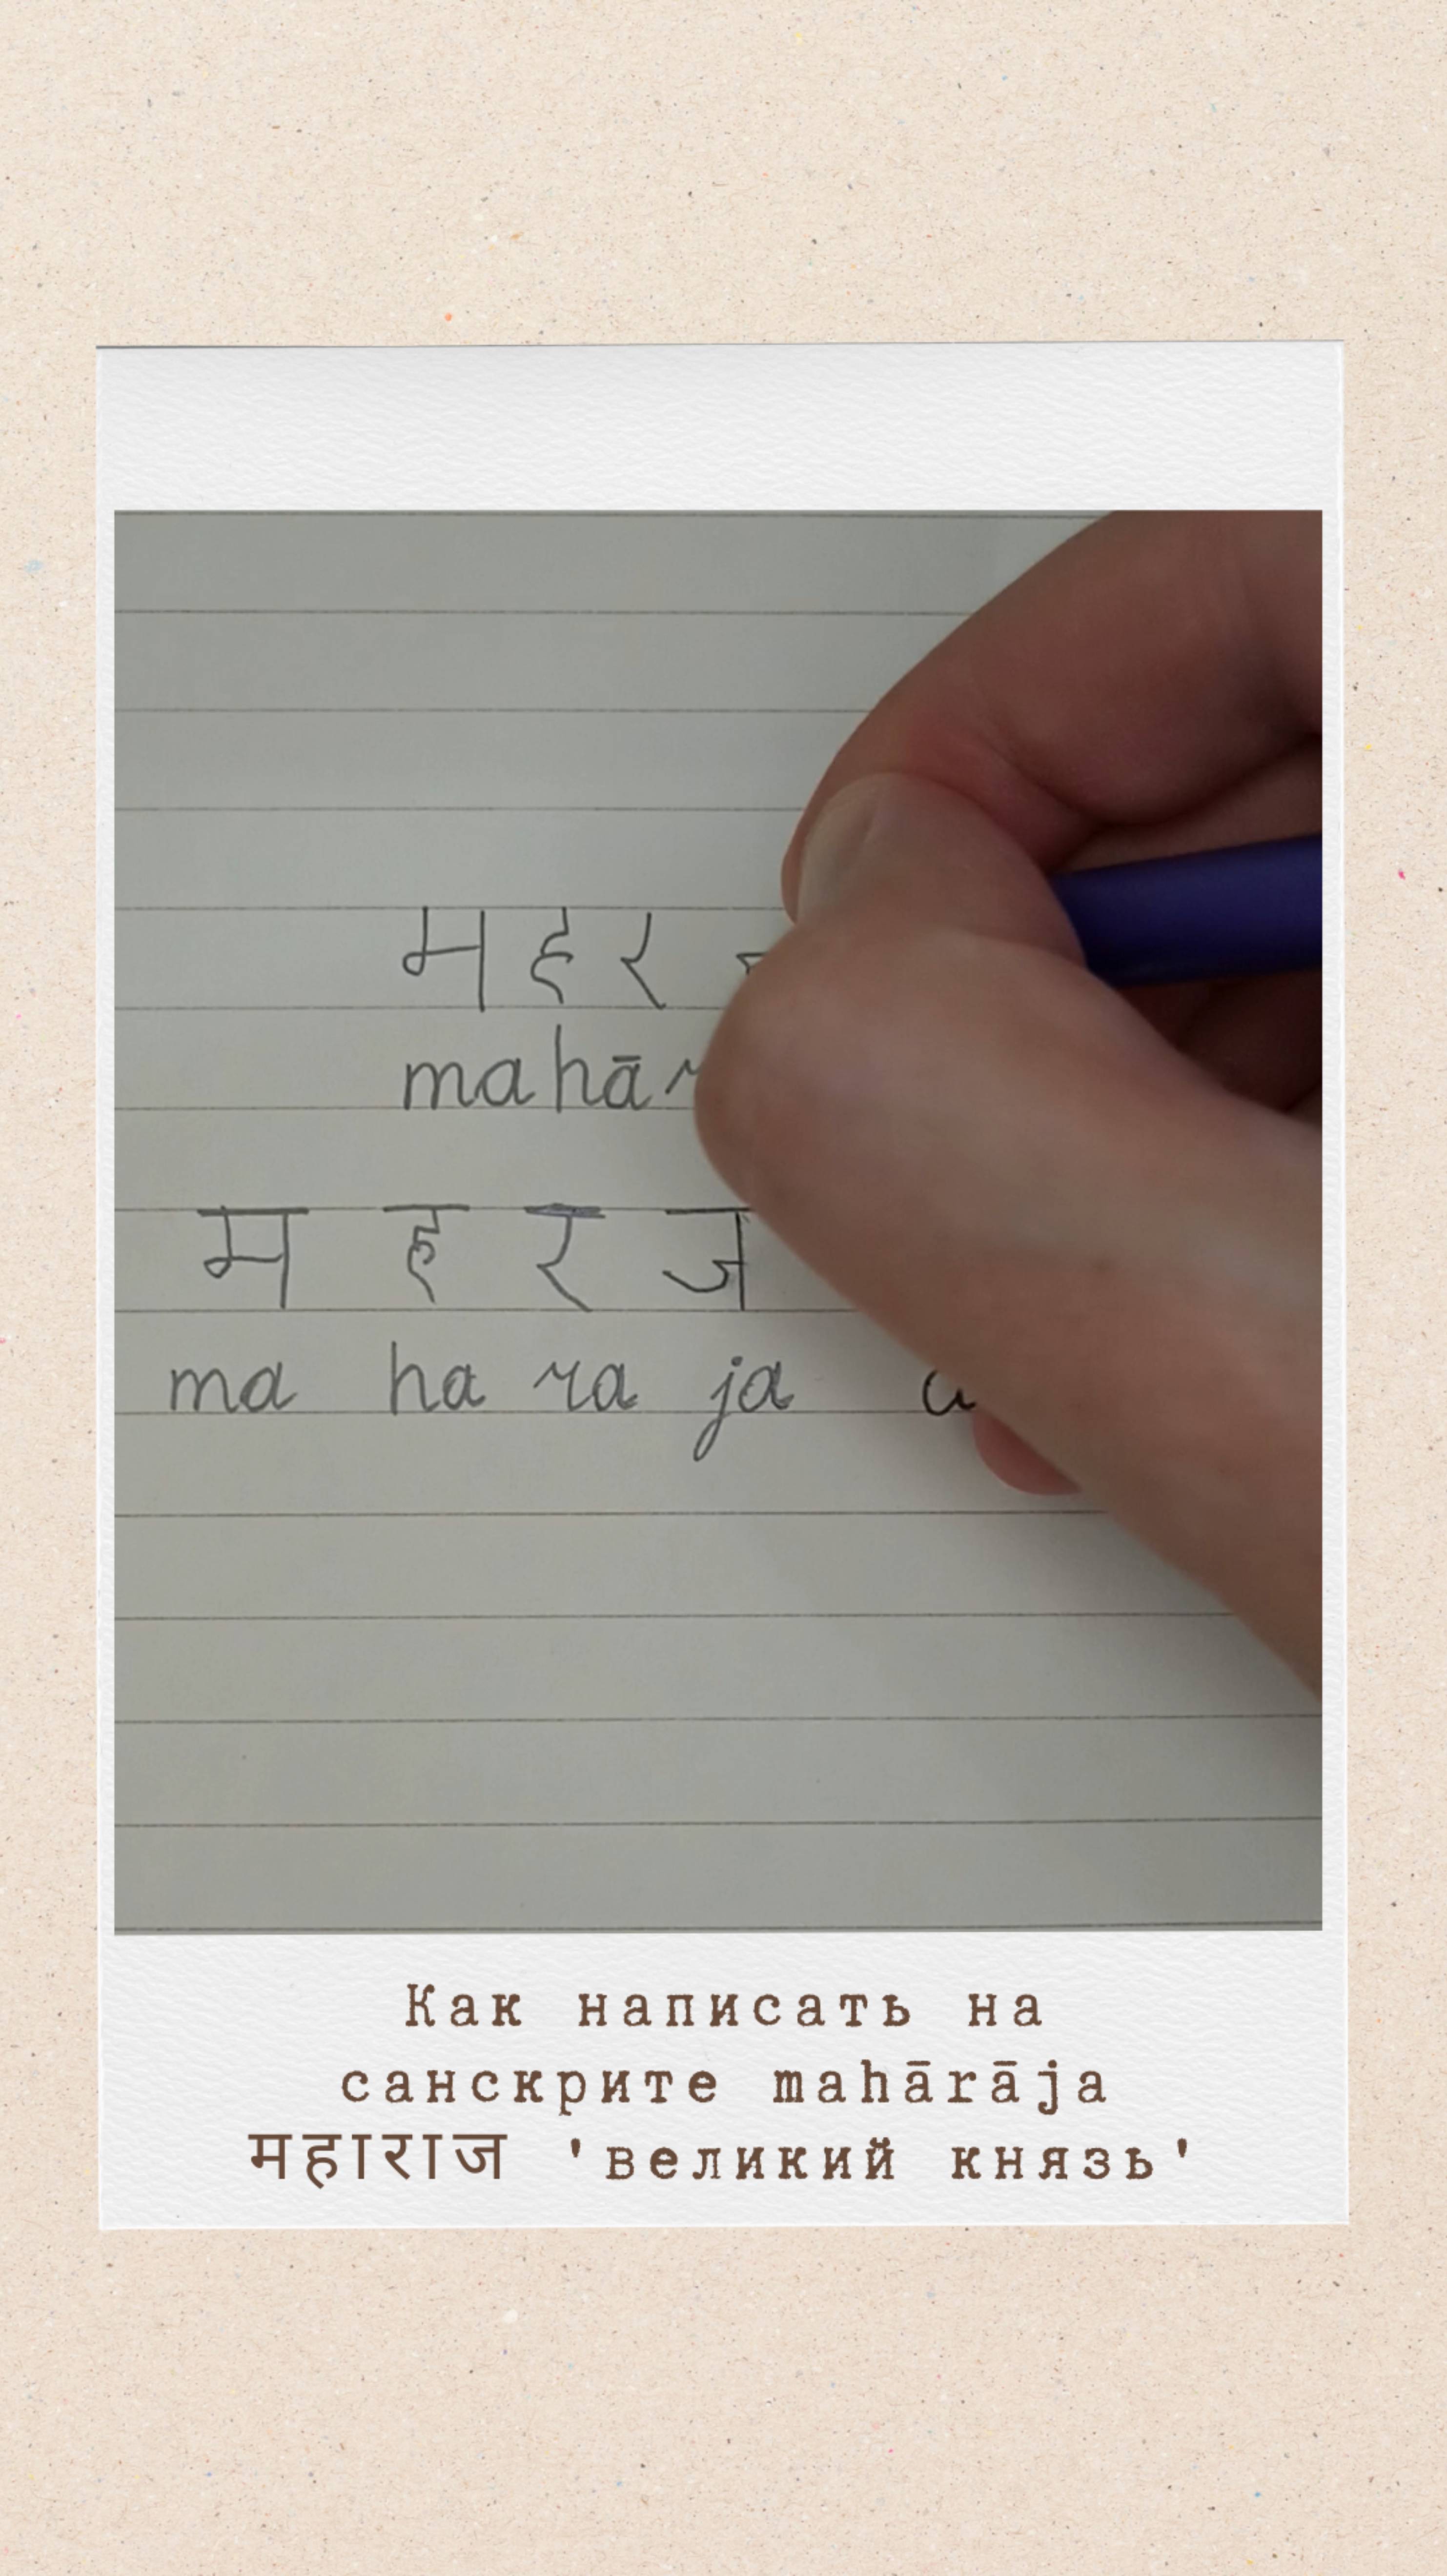 महर
mahā
म ह र ज
ma ha ra ja
Как написать на
санскрите mahārāja
महाराज 'великий князь'